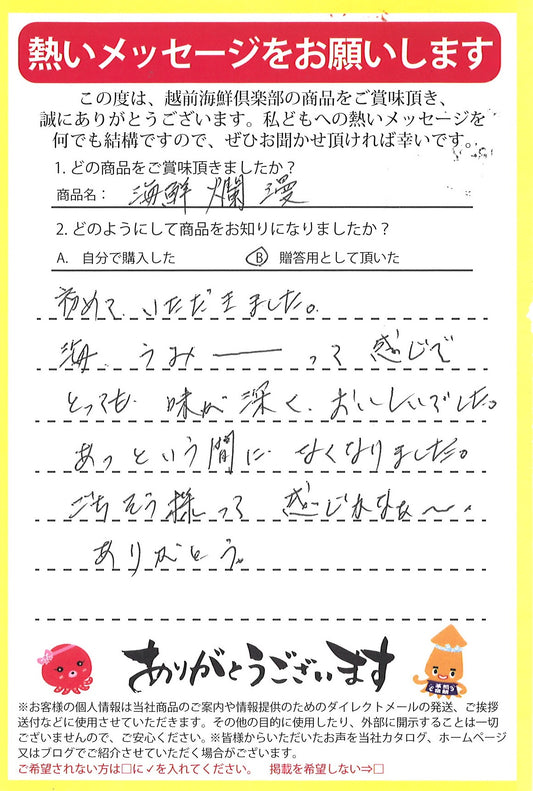 熱いメッセージをお願いします
この度は、越前海鮮倶楽部の商品をご賞味頂き、
誠にありがとうございます。私どもへの熱いメッセージを
何でも結構ですので、ぜひお聞かせ頂ければ幸いです。
1. どの商品をご賞味頂きましたか?
商品名: 海鮮爛漫
2. どのようにして商品をお知りになりましたか?
A. 自分で購入した Ⓑ 贈答用として頂いた
初めて、いただきました。
海、うみーーーって感じで
とっても味が深く、おいしいでした。
あっという間になくなりました。
ごちそう様って感じかなぁ〜。
ありがとう。
ありがとうございます
※お客様の個人情報は当社商品のご案内や情報提供のためのダイレクトメールの発送、ご挨拶
送付などに使用させていただきます。その他の目的に使用したり、外部に開示することは一切
ございませんので、ご安心ください。※皆様からいただいたお声を当社カタログ、ホームページ
又はブログでご紹介させていただく場合がございます。
ご希望されない方は□に✓を入れてください。 掲載を希望しない⇒□